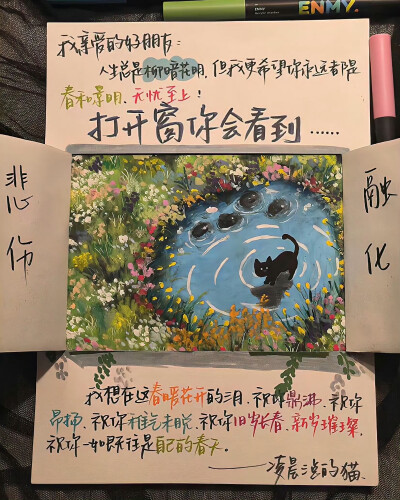 ENMY.
我亲爱的好朋友：
人生总是柳暗花明、但我更希望你永远都是
春和景明、无忧至上！
打开窗你会看到……
悲伤
融化
我想在这春暖花开的三月、祝你鼎沸、祝你
昂扬、祝你稚气未脱、祝你旧岁长春、新岁璀璨、
祝你一如既往是自己的春天。
——凌晨三点的猫